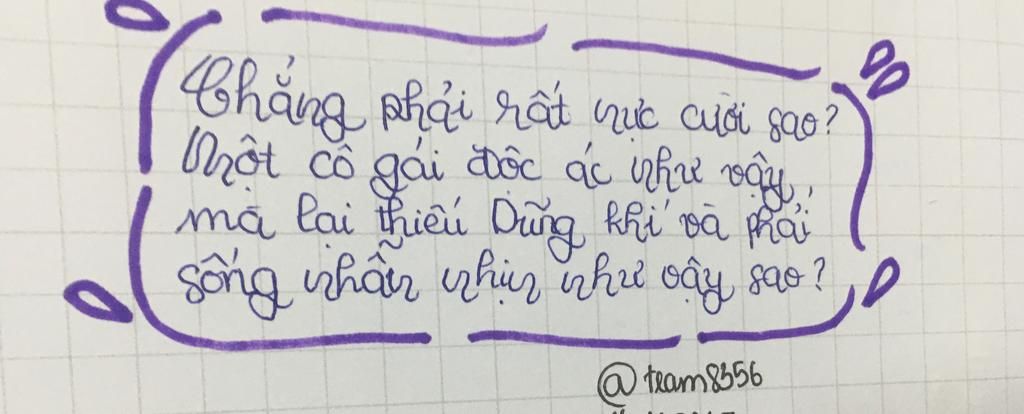 Chẳng phải rất nực cười sao?
Một cô gái độc ác như vậy,
mà lại thiếu Dũng khí và phải
sống nhẫn nhịn như vậy sao?
@team8356